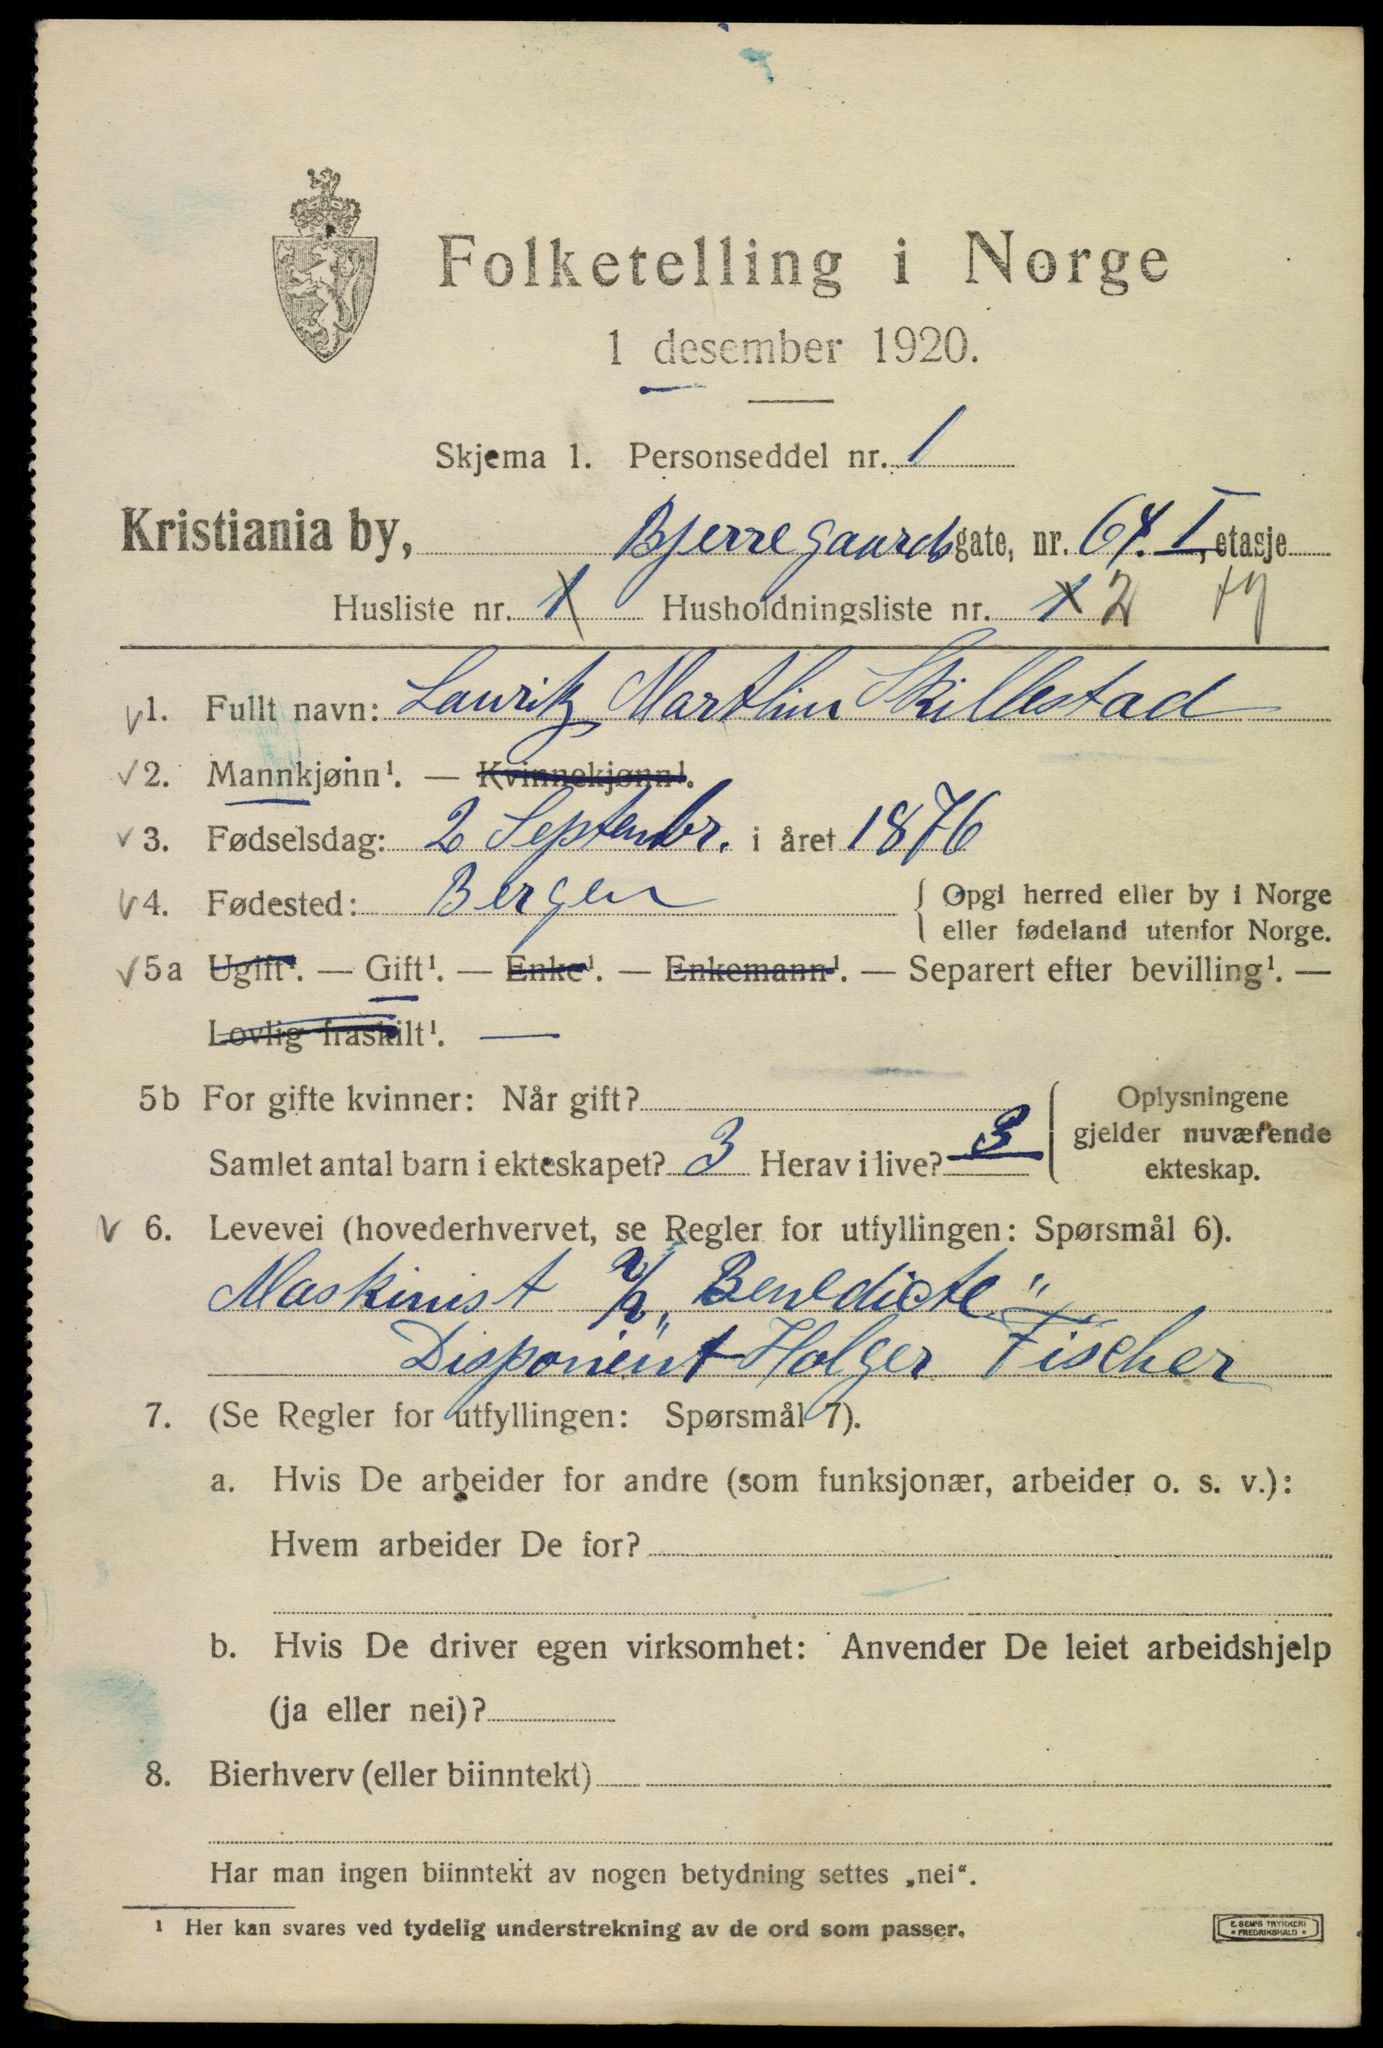 Folketelling i Norge
1 desember 1920.
Skjema 1. Personseddel nr. 1
Kristiania by, Bjerregaardsgate, nr. 64. I, etasje
Husliste nr. 1 Husholdningsliste nr. 1 2
1. Fullt navn: Lauritz Marthin Skillestad
2. Mannkjønn¹. — Kvinnekjønn¹.
3. Fødselsdag: 2 Septembr. i året 1876
4. Fødested: Bergen { Opgi herred eller by i Norge
eller fødeland utenfor Norge.
5a Ugift¹. — Gift¹. — Enke¹. — Enkemann¹. — Separert efter bevilling¹. —
Lovlig fraskilt¹. —
5b For gifte kvinner: Når gift? { Oplysningene
gjelder nuværende
Samlet antal barn i ekteskapet? 3 Herav i live? 3
ekteskap.
6. Levevei (hovederhvervet, se Regler for utfyllingen: Spørsmål 6).
Maskinist „Benedicte"
Disponent Holger Fischer
7. (Se Regler for utfyllingen: Spørsmål 7).
a. Hvis De arbeider for andre (som funksjonær, arbeider o. s. v.):
Hvem arbeider De for?
b. Hvis De driver egen virksomhet: Anvender De leiet arbeidshjelp
(ja eller nei)?
8. Bierhverv (eller biinntekt)
Har man ingen biinntekt av nogen betydning settes „nei".
¹ Her kan svares ved tydelig understrekning av de ord som passer.
E. SEMS TRYKKERI
• FREDRIKSHALD •